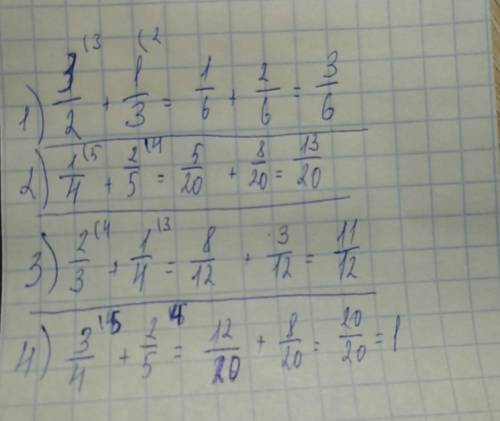 1) 1/2 (3 + 1/3 (2 = 1/6 + 2/6 = 3/6
2) 1/4 (5 + 2/5 (4 = 5/20 + 8/20 = 13/20
3) 2/3 (4 + 1/4 (3 = 8/12 + 3/12 = 11/12
4) 3/4 + 2/5 = 12/20 + 8/20 = 20/20 = 1